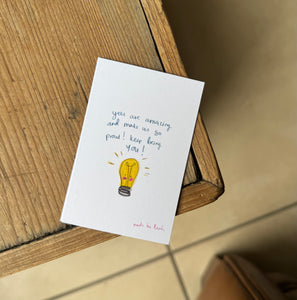 you are amazing
and make us so
proud! keep being
YOU!